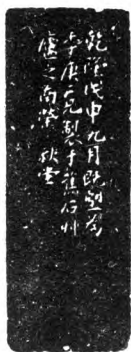 乾隆戊申九月既望為
庚兄製于蕉石
廬之南榮 秋堂